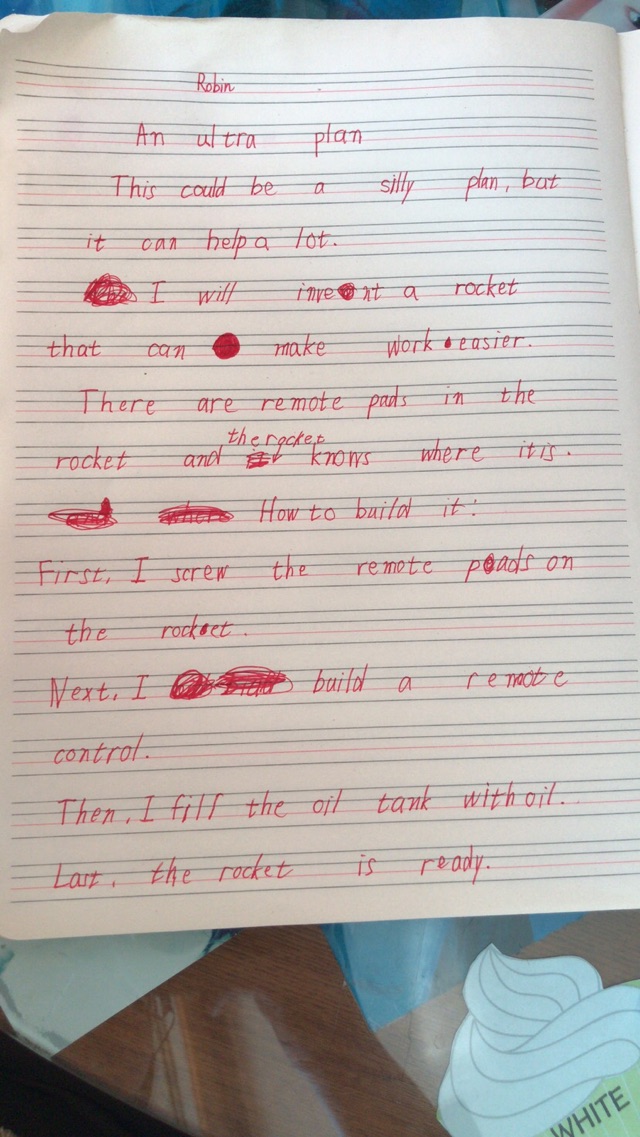 Robin
An ultra plan
This could be a silly plan, but
it can help a lot.
I will invent a rocket
that can make work easier.
There are remote pads in the
the rocket
rocket and knows where it is.
How to build it:
First, I screw the remote pads on
the rocket.
Next, I build a remote
control.
Then, I fill the oil tank with oil.
Last, the rocket is ready.
WHITE